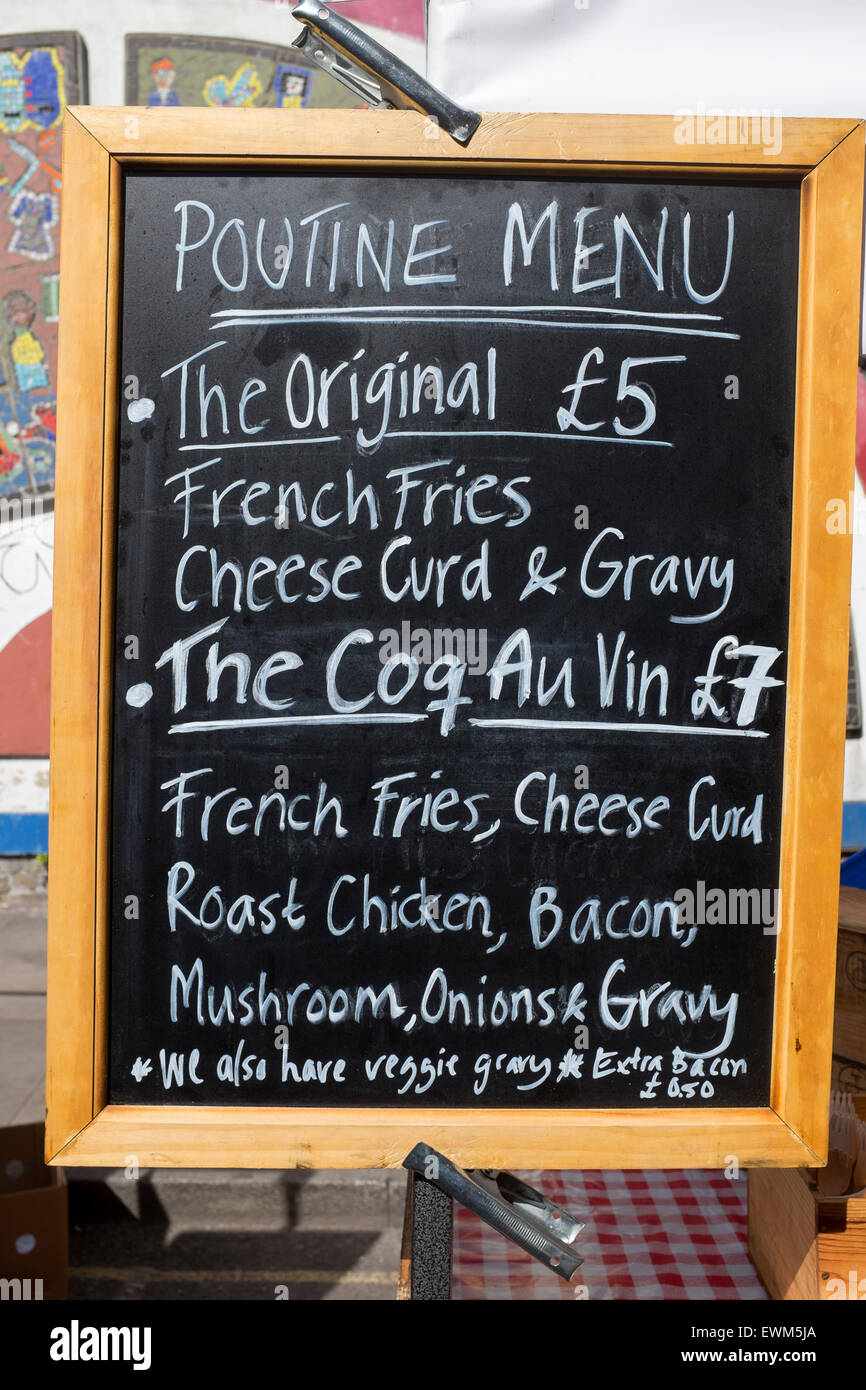 POUTINE MENU
• The Original £5
French Fries
Cheese Curd & Gravy
• The Coq Au Vin £7
French Fries, Cheese Curd
Roast Chicken, Bacon,
Mushroom, Onions & Gravy
* We also have veggie gravy * Extra Bacon
£0.50
alamy
Image ID: EWM5JA
www.alamy.com